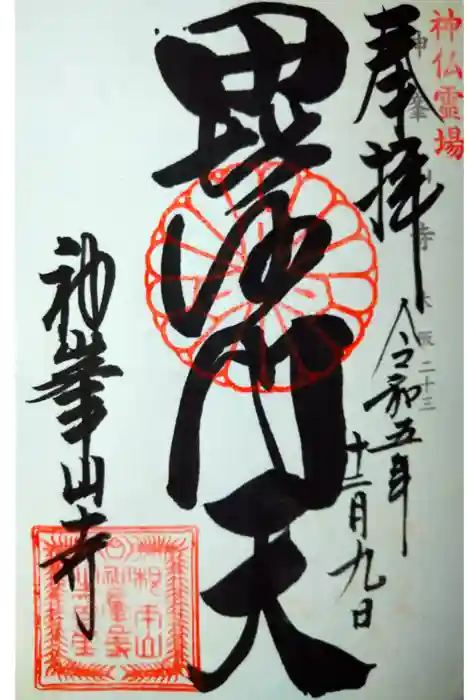 神仏霊場
神峯山寺 大阪二十三
奉拝
令和五年
十二月九日
毘沙門天
神峯山寺